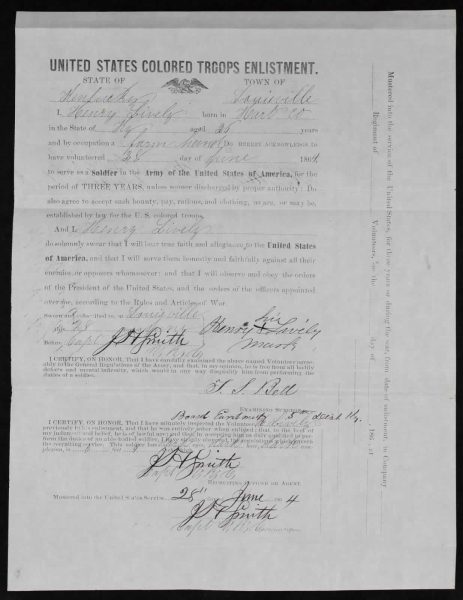 UNITED STATES COLORED TROOPS ENLISTMENT.
STATE OF TOWN OF
Kentucky Louisville
I, Henry Lively born in Hart Co
in the State of Ky aged 26 years
and by occupation a farmer Do HEREBY ACKNOWLEDGE to
have volunteered 28 day of June 1864,
to serve as a Soldier in the Army of the United States of America, for the
period of THREE YEARS, unless sooner discharged by proper authority: Do
also agree to accept such bounty, pay, rations, and clothing, as are, or may be,
established by law for the U.S. colored troops.
And I, Henry Lively
do solemnly swear that I will bear true faith and allegiance to the United States
of America, and that I will serve them honestly and faithfully against all their
enemies or opposers whomsoever: and that I will observe and obey the orders
of the President of the United States, and the orders of the officers appointed
over me, according to the Rules and Articles of War.
Sworn and to, at Louisville
28
Before Capt J H Smith
Henry X Lively
his
mark
I CERTIFY, ON HONOR, That I have carefully examined the above named Volunteer
to the General Regulations of the Army, and that, in my opinion, he is free from all bodily
defects and mental infirmity, which would in any way disqualify him from performing the
duties of a soldier.
Bell
EXAMINING SURGEON
Board 5 Dist Ky.
I CERTIFY, ON HONOR, That I have minutely inspected the Volunteer, H Lively
previously to his enlistment, and that he was entirely sober when enlisted; that to the best of
my judgment and belief, he is of lawful age; and that, in accepting him as duly qualified to
perform the duties of an able-bodied soldier, I have strictly observed the
J H Smith
RECRUITING OFFICER OR AGENT.
Mustered into the United States Service, 28" June 1864
J H Smith
Capt
Mustered into the service of the United States, for three years or during the war, from date of enlistment, in Company
Regiment of Volunteers, on the day of 186 , at